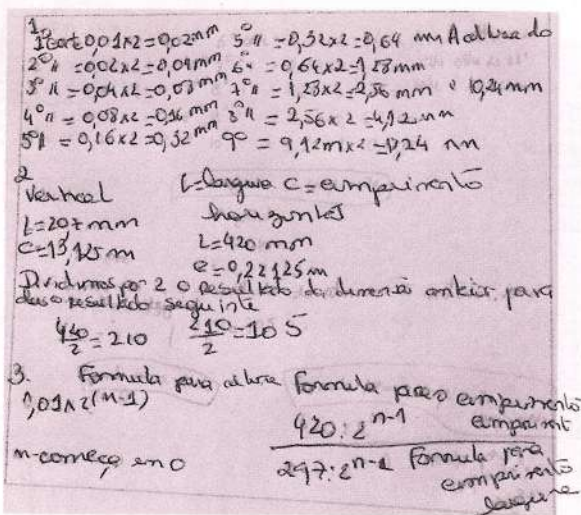 1.
1º corte 0,01x2=0,02mm 5º 11 =0,32x2=0,64 mm A altura do
2º 11 =0,02x2=0,04mm 6º =0,64x2=1,28mm
3º 11 =0,04x2=0,08mm 7º =1,28x2=2,56 mm é 10,24mm
4º 11 =0,08x2=0,16mm 8º 11 =2,56x2=4,12mm
5º 11 =0,16x2=0,32mm 9º =9,12mx2=10,24 mm
2
Vertical L=largura C=comprimento
horizontal
L=207mm L=420mm
C=13,125m C=0,22125m
Dividimos por 2 o resultado da dimensão anterior para
o resultado seguinte
420/2=210 210/2=105
3. Formula para altura Formula para o comprimento
0,01x2^(n-1) 420:2^n-1
n-começa em 0 297:2^n-1 Formula para
largura